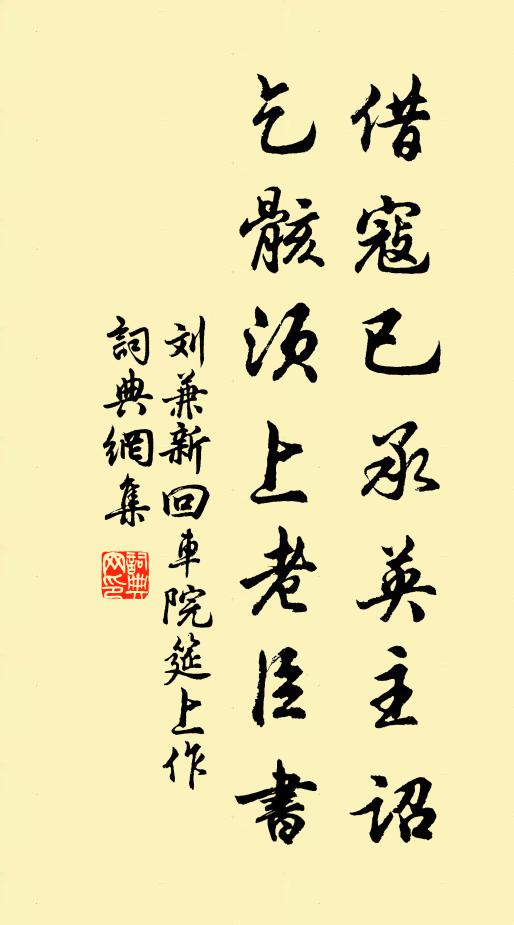 借寇已承英主詔
乞骸须上老臣書
刘兼新回車院筵上作
詞典網集
詞典網印